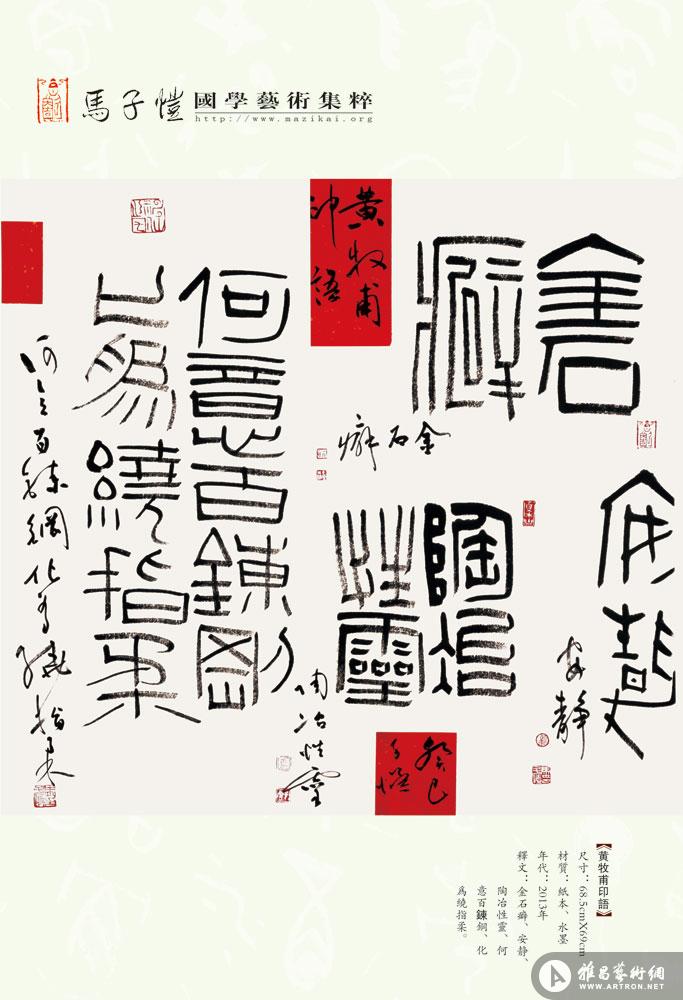 馬子愷
國學藝術集粹
http://www.mazikai.org
黃牧甫
印語
金石
癖
金石癖
安靜
安靜
陶冶
性靈
陶冶性靈
何意百鍊剛
化為繞指柔
何意百鍊鋼化為繞指柔
癸巳
子愷
【《黃牧甫印語》】
尺寸：68.5cmX69cm
材質：紙本、水墨
年代：2013年
釋文：金石癖、安静、
陶冶性靈、何
意百鍊鋼、化
為繞指柔。
雅昌藝術網
WWW.ARTRON.NET